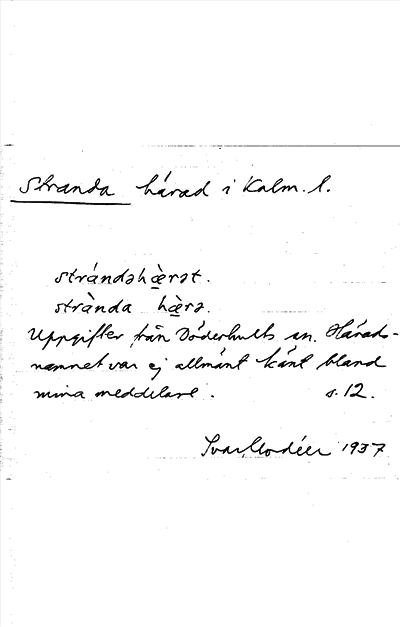 Stranda härad i Kalm. l.
strándəhæ̀rət.
strànda hæ̀rə.
Uppgifter från Döderhults sn. Härads-
namnet var ej allmänt känt bland
mina meddelare. s. 12.
Ivar Modéer 1937